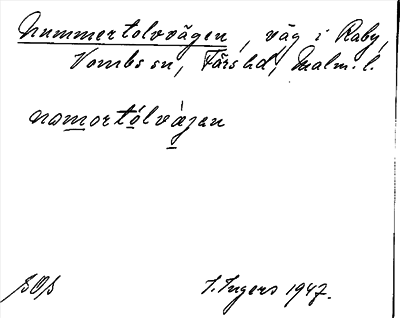 Nummertolvvägen, väg i Råby,
Vombs sn, Färs hd, Malm. l.
nomortólvàgen
SOS
I. Ingers 1947.